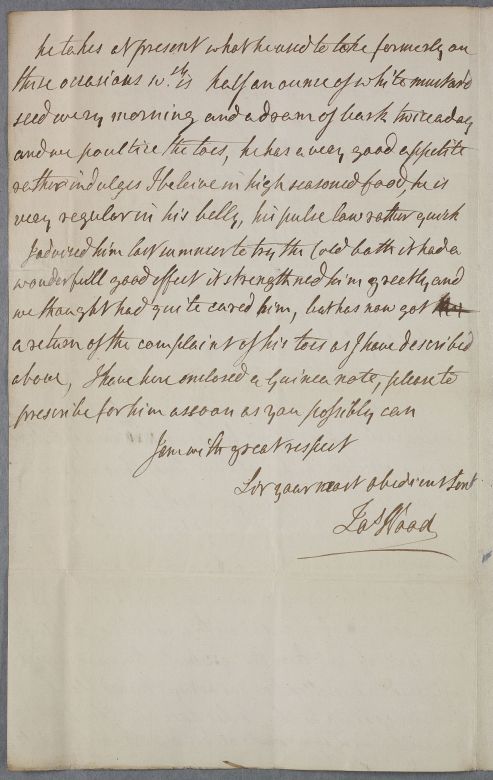 he takes at present what he used to take formerly on
those occasions wch is half an ounce of white mustard
seed every morning and a dram of bark twice a day
and we poultice the toes, he has a very good appetite
rather indulges I beleive in high seasoned food, he is
very regular in his belly, his pulse low rather quick
I advised him last summer to try the Cold bath it had a
wonderfull good effect it strengthned him greatly and
we thought had quite cured him, but has now got
a return of the complaint of his toes as I have described
above, I have here enclosed a Guinea note, please to
prescribe for him as soon as you possibly can
I am with great respect
Sir your most obedient Sert
Jas Wood